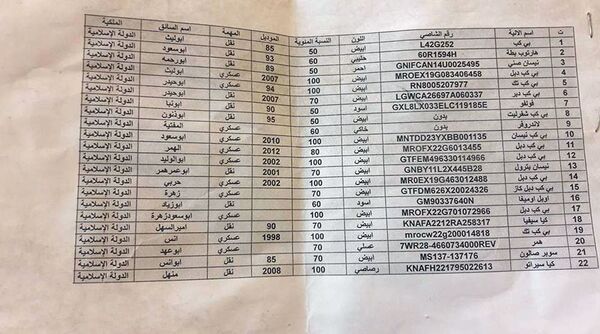 ت اسم الالية رقم الشاصي اللون النسبة المئوية الموديل المهمة اسم السائق الملكية
1 بي كب L42G252 ابيض 50 85 نقل ابوليث الدولة الإسلامية
2 هارتوب بطة 60R1594H حليبي 60 93 نقل ابوسعود الدولة الإسلامية
3 نيسان صني GNIFCAN14U0025495 احمر 50 89 نقل ابورحمه الدولة الإسلامية
4 بي كب دبل MROEX19G083406458 ابيض 100 2007 عسكري ابوليث الدولة الإسلامية
5 بي كب تك RN8005207977 ابيض 70 94 نقل ابوحيدر الدولة الإسلامية
6 بي كب دبر LGWCA26697A060337 ابيض 100 2007 عسكري ابوحيدر الدولة الإسلامية
7 فولفو GXL8LX033ELC119185E اسود 50 90 نقل ابونبا الدولة الإسلامية
8 بي كب شفرليت بدون ابيض 70 95 نقل ابوذنون الدولة الإسلامية
9 لاندروفر بدون خاكي 60 عسكري الدولة الإسلامية
10 بي كب نيسان MNTDD23YXBB001135 ابيض 100 2010 عسكري ابوسعود الدولة الإسلامية
11 بي كب دبل MROFX22G6013455 ابيض 80 2012 عسكري الدولة الإسلامية
12 بي كب دبل GTFEM496330114966 ابيض 100 2002 نقل ابوالوليد الدولة الإسلامية
13 نيسان بترول GNBY11L2X445B28 ابيض 70 2001 نقل ابوعمرهمر الدولة الإسلامية
14 بي كب دبل MR0EX19G463012488 ابيض 100 2002 عسكري حربي الدولة الإسلامية
15 بي كب دبل كاز GTFDM626X20024326 ابيض 70 عسكري زهرة الدولة الإسلامية
16 اوبل اوميغا GM90337640N اسود 60 نقل ابوزياد الدولة الإسلامية
17 بي كب دبل MROFX22G701072966 ابيض 100 عسكري ابوسعودزهرة الدولة الإسلامية
18 كيا سيفيا KNAFA2212RA258317 ابيض 100 90 نقل اميرالسهل الدولة الإسلامية
19 بي كب تك mrocw22g200014818 ابيض 100 1998 عسكري انس الدولة الإسلامية
20 همر 7WR28-4660734000REV عسلي 70 عسكري ابوعهد الدولة الإسلامية
21 سوبر صالون MS137-137176 ابيض 70 85 نقل ابوانس الدولة الإسلامية
22 كيا سيراتو KNAFH221795022613 رصاصي 100 2008 نقل منهل الدولة الإسلامية